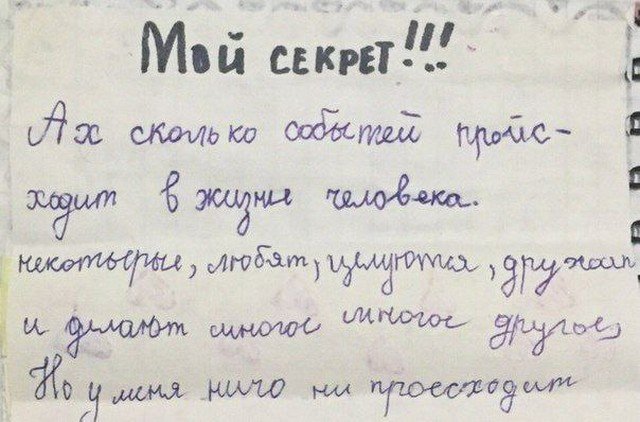 Мой СЕКРЕТ!!!
Ах сколько событей пройс-
ходит в жизни человека.
некотырые, любят, целуются, дружат
и делают многое многое другое,
Но у меня ничо ни проесходит